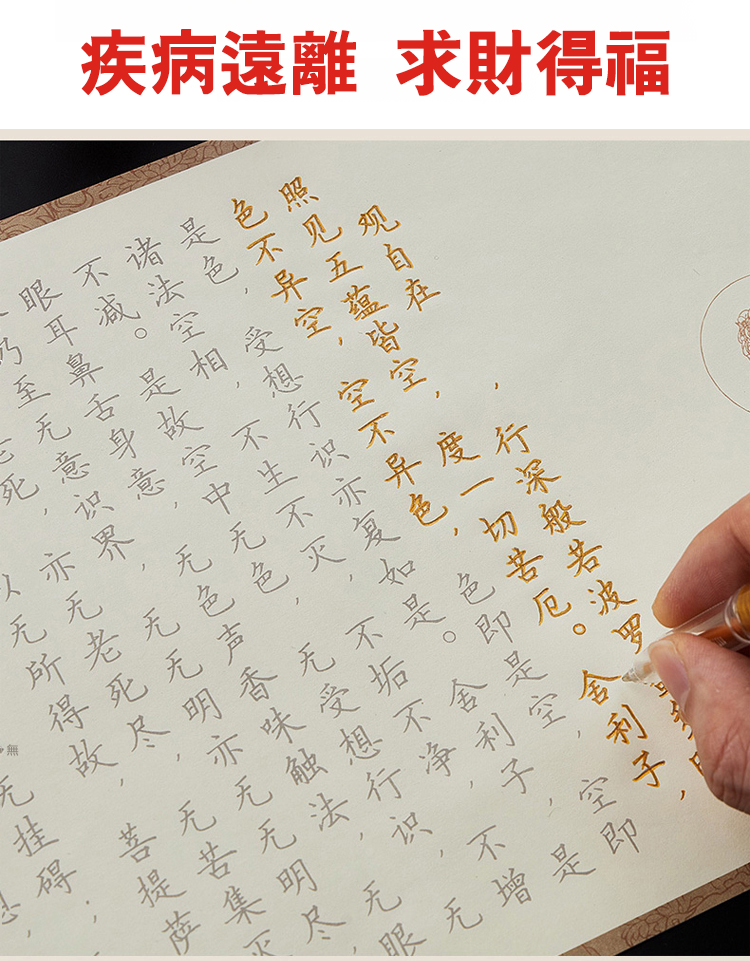 疾病遠離 求財得福
观自在，行深般若波罗
照见五蕴皆空，度一切苦厄。舍利子，
色不异空，空不异色，色即是空，空即
是色，受想行识亦复如是。舍利子，是
诸法空相，不生不灭，不垢不净，不增
不减。是故空中无色，无受想行识，无
眼耳鼻舌身意，无色声香味触法，无眼
乃至无意识界，无无明，亦无无明尽
死，亦无老死尽，无苦集灭
以无所得故，菩提萨
无挂碍
無